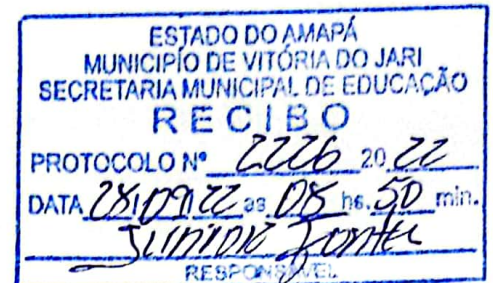 ESTADO DO AMAPÁ
MUNICIPÍO DE VITÓRIA DO JARI
SECRETARIA MUNICIPAL DE EDUCAÇÃO
RECIBO
PROTOCOLO Nº 2226 20 22
DATA 28/09/22 as 08 hs. 50 min.
JUNIOR
RESPONSÁVEL